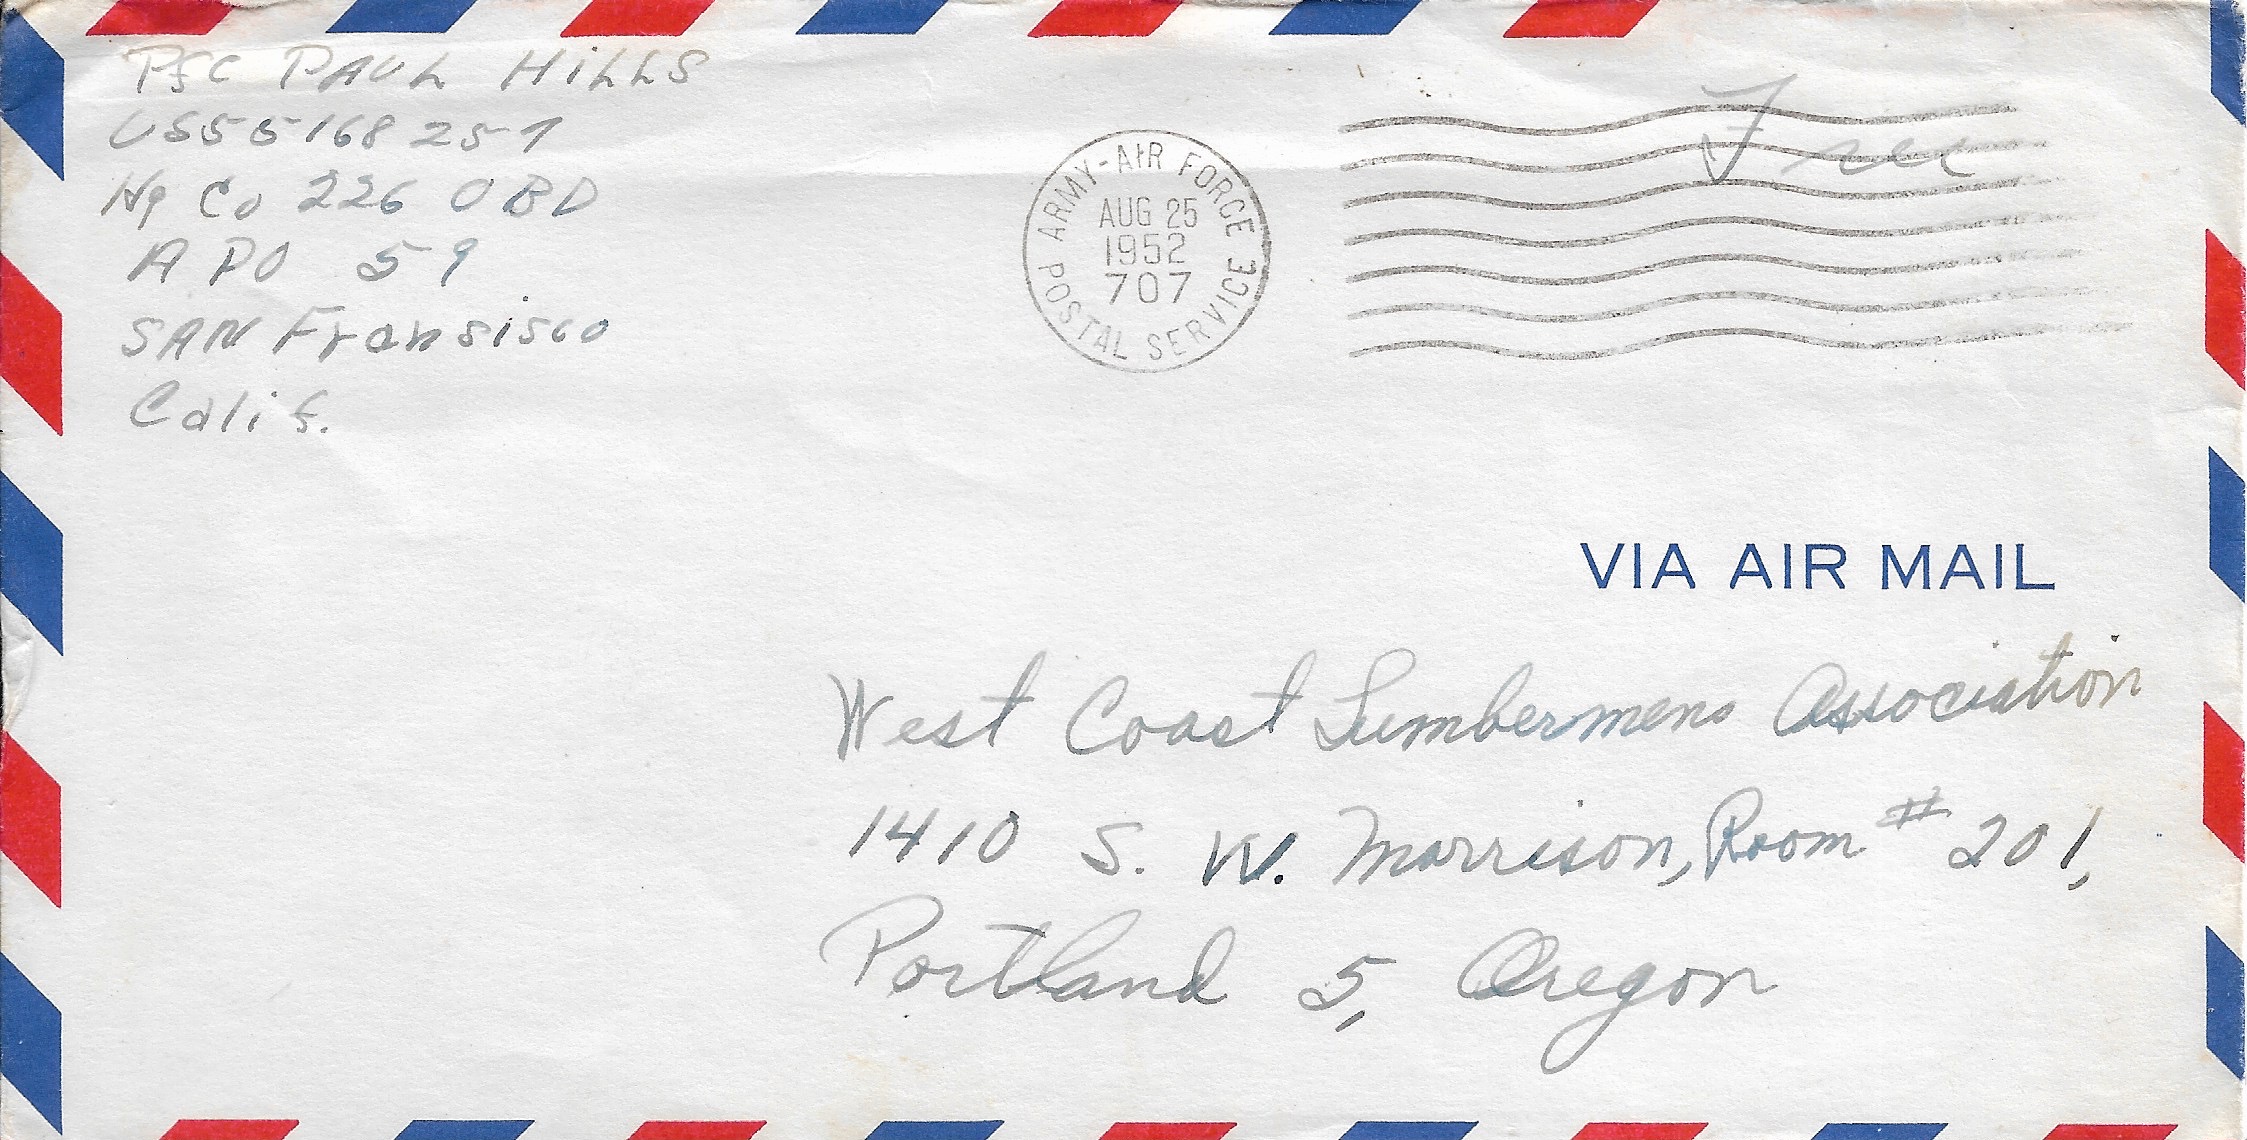 Pfc PAUL HILLS
US55168257
Hq Co 226 OBD
APO 59
SAN Fransisco
Calif.
ARMY-AIR FORCE POSTAL SERVICE
AUG 25
1952
707
Free
VIA AIR MAIL
West Coast Lumbermens Association
1410 S. W. Morrison, Room # 201,
Portland 5, Oregon